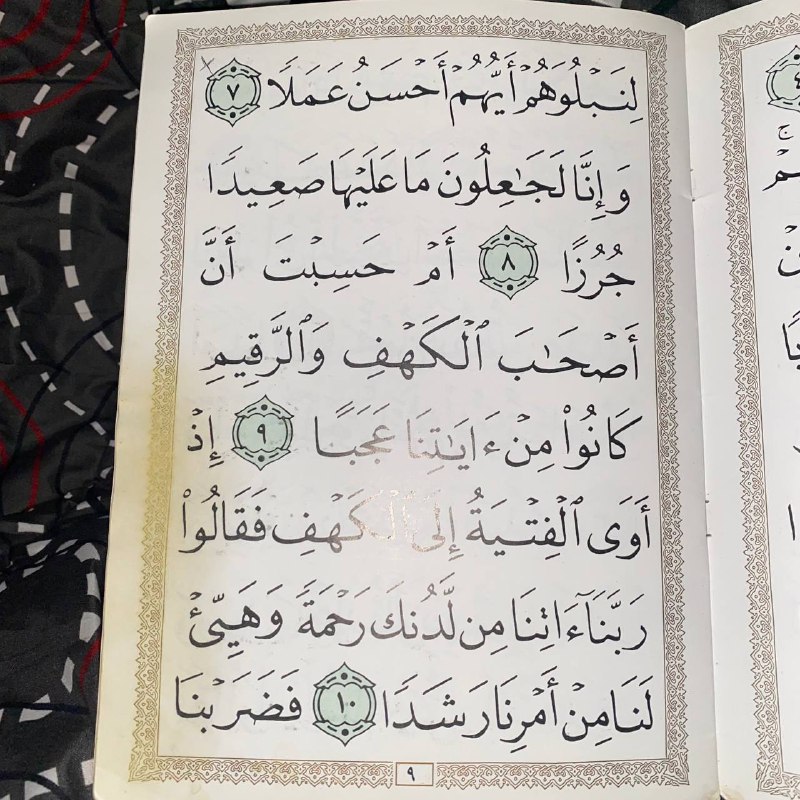 لِنَبۡلُوَهُمۡ أَيُّهُمۡ أَحۡسَنُ عَمَلًا ٧
وَإِنَّا لَجَٰعِلُونَ مَا عَلَيۡهَا صَعِيدًا
جُرُزًا ٨ أَمۡ حَسِبۡتَ أَنَّ
أَصۡحَٰبَ ٱلۡكَهۡفِ وَٱلرَّقِيمِ
كَانُوا۟ مِنۡ ءَايَٰتِنَا عَجَبًا ٩ إِذۡ
أَوَى ٱلۡفِتۡيَةُ إِلَى ٱلۡكَهۡفِ فَقَالُوا۟
رَبَّنَآ ءَاتِنَا مِن لَّدُنكَ رَحۡمَةً وَهَيِّئۡ
لَنَا مِنۡ أَمۡرِنَا رَشَدًا ١٠ فَضَرَبۡنَا
٩